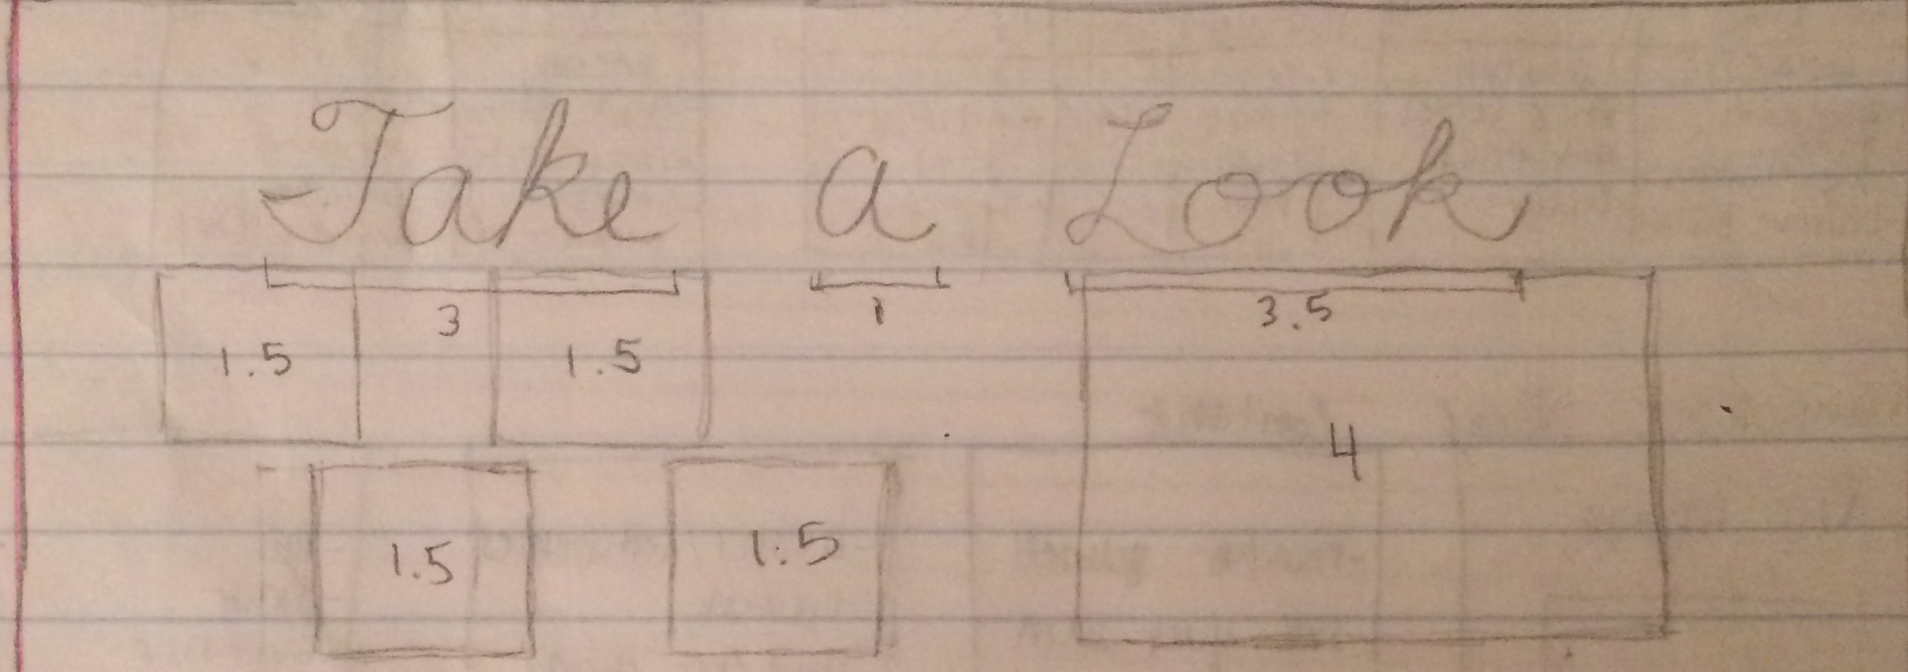 Take a Look
3 1 3.5
1.5 1.5
4
1.5 1.5